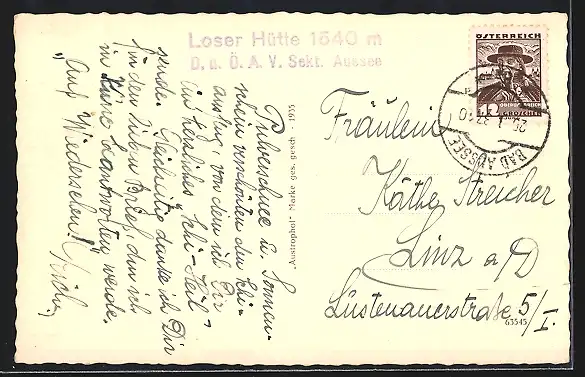 Loser Hütte 1540 m
D. u. Ö. A. V. Sekt. Aussee
ÖSTERREICH
OBERÖSTERREICH
GROSCHEN
BAD AUSSEE
Pulverschnee u. Sonnen-
schein verschönten den Schi-
ausflug, von dem ich Dir
ein herzliches Schi-Heil
sende. Gleichzeitig danke ich Dir
für den lieben Brief, den ich
in Kürze beantworten werde.
„Auf Wiedersehen!"
„Austrophot" Marke ges. gesch. - 1935
Fräulein
Käthe Streicher
Linz a/D
Lustenauerstraße 5/I.
63545